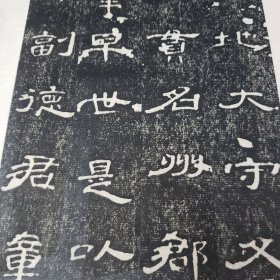 地大守父
貫名州郡
早世是以
副德君童